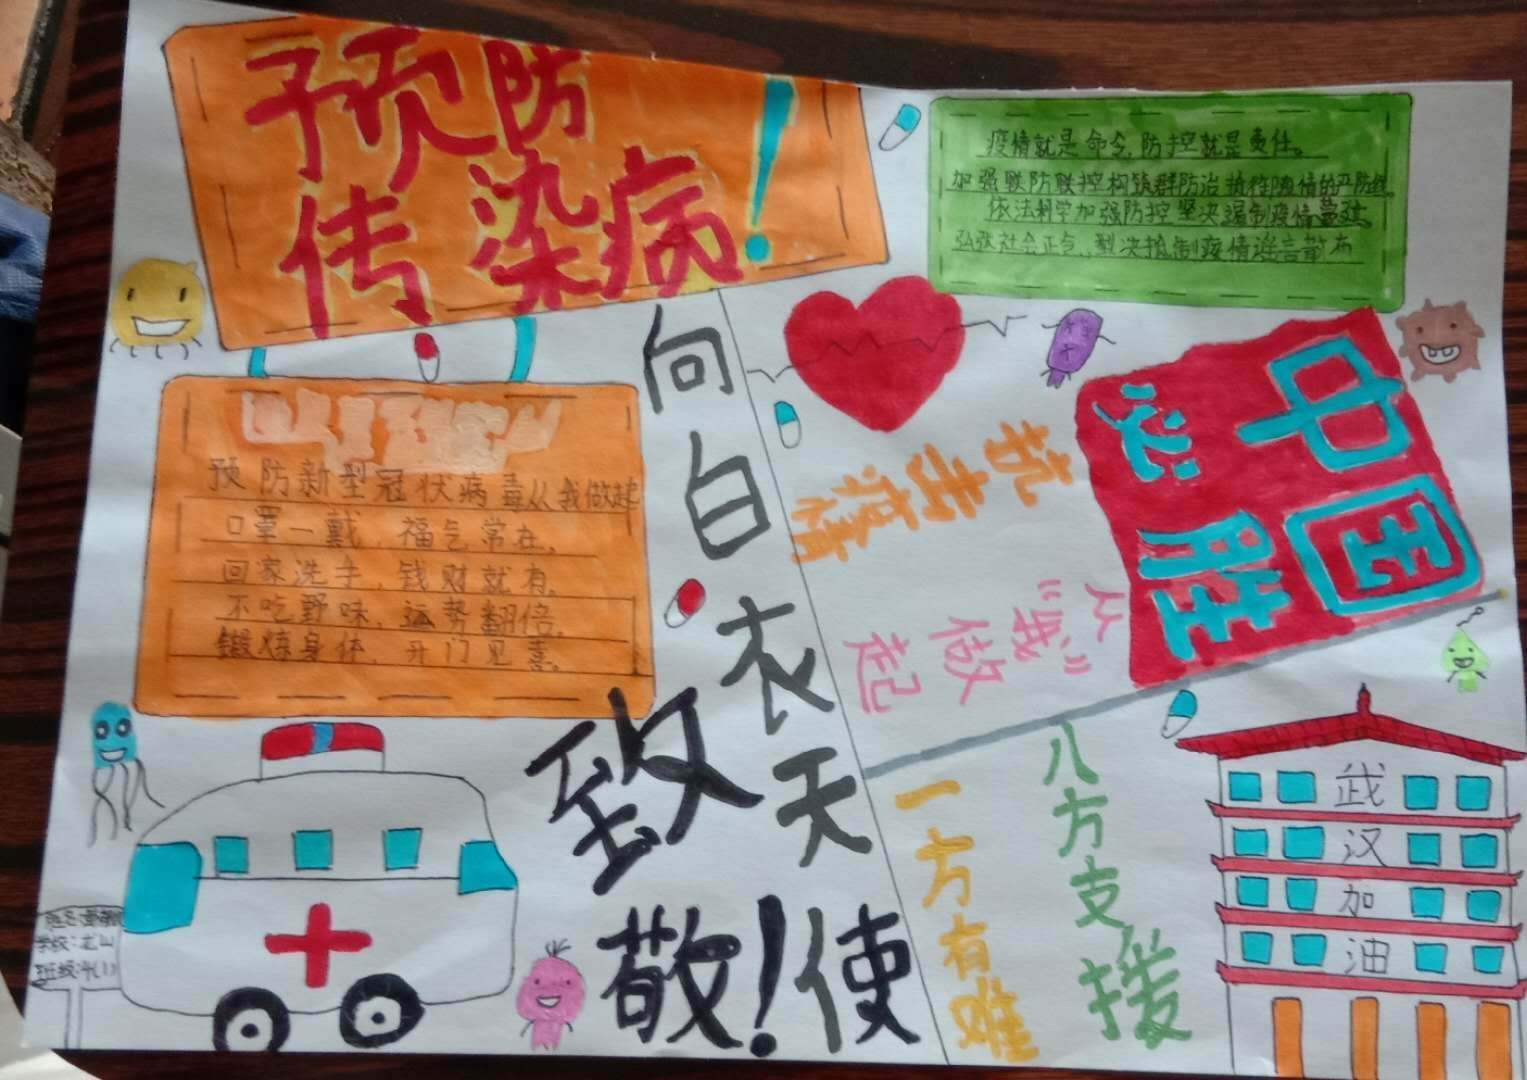 预防
传染病!
疫情就是命令,防控就是责任。
加强联防联控构筑群防治
依法科学加强防控坚决遏制疫情蔓延
弘张社会正气,坚决抵制疫情谣言散布
预防新型冠状病毒从我做起
口罩一戴,福气常在,
回家洗手,钱财就有,
不吃野味,运势翻倍,
锻炼身体,开门见喜。
向白衣天使
致敬!
抗击疫情
从“我”做起
中国
必胜
一方有难
八方支援
武
汉
加
油
学校:北山
班级:4(1)